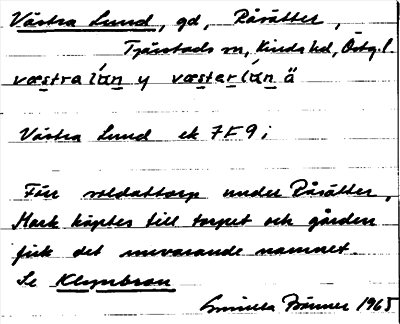 Västra Lund, gd, Råsätter,
Tjärstads sn, Kinds hd, Östg. l.
væstra lún y væstarlún ä
Västra Lund ek 7F9i
Förr soldattorp under Råsätter,
Mark köptes till torpet och gården
fick det nuvarande namnet.
Se Klynbron
Gunilla 1965